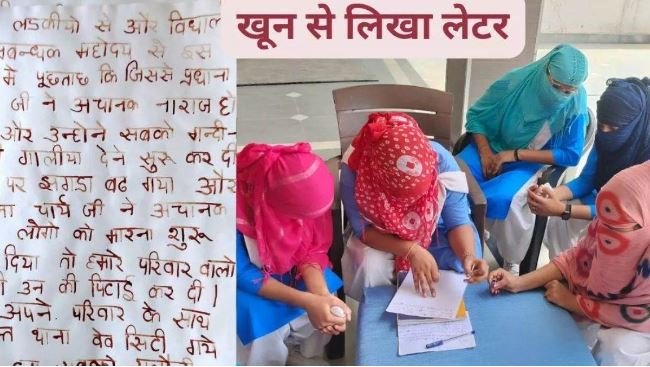 खून से लिखा लेटर
लडकीयो से और विद्याल
प्रबन्धक महोदय से इस
मे पूछताछ कि जिससे प्रधाना
जी ने अचानक नाराज हो
और उन्होने सबको गन्दी-
गालीया देने सुरू कर दी
पर झगडा बढ गया और
चार्य जी ने अचानक
लोगो को मारना शुरू
दिया तो हमारे परिवार वालो
उन की पिटाई कर दी।
अपने परिवार के साथ
थाना वेव सिटी गये